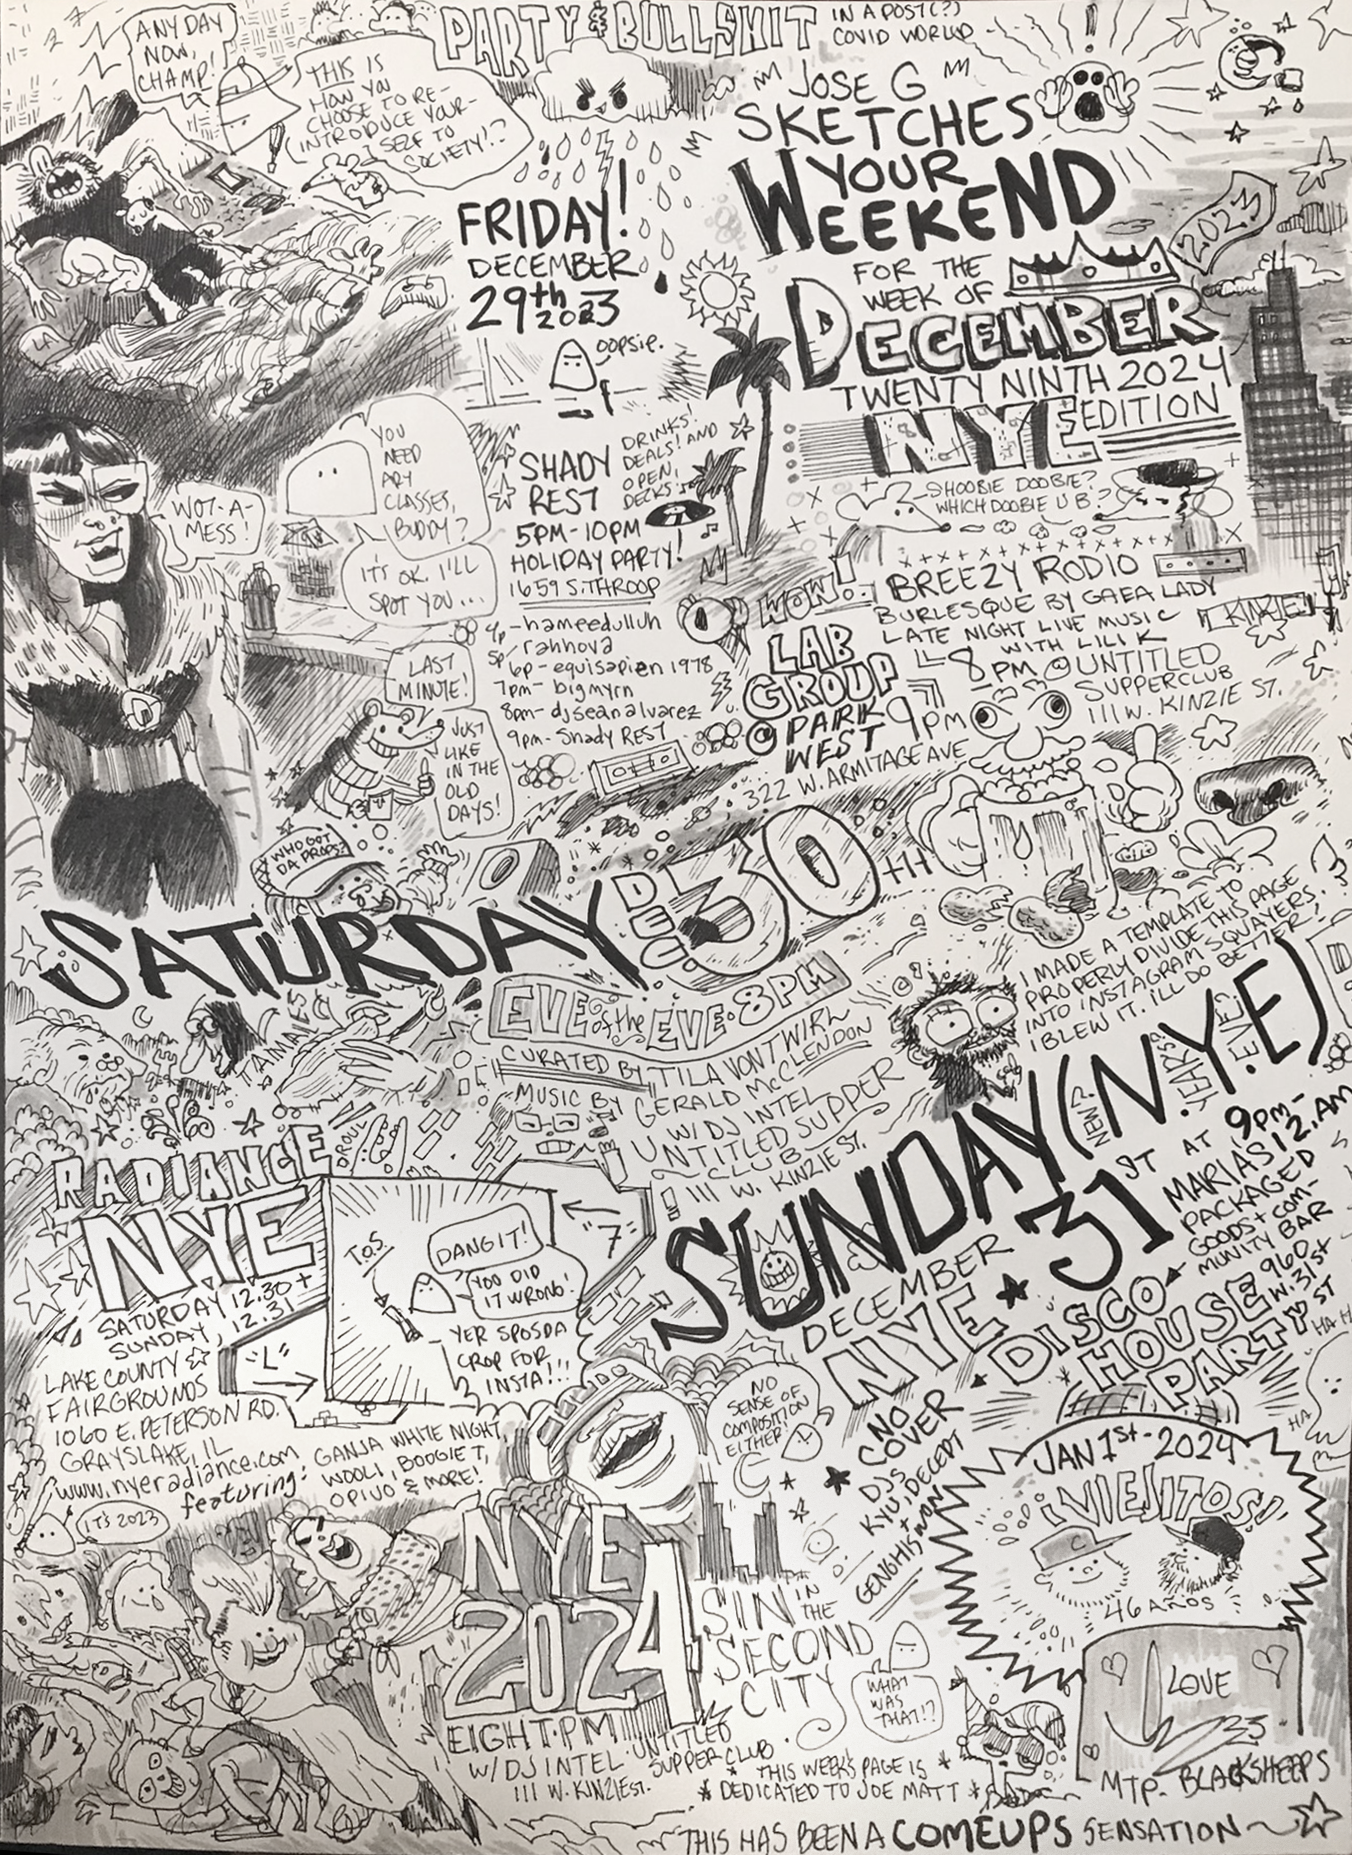 PARTY & BULLSHIT
IN A POST(?)
COVID WORLD
ANY DAY
NOW,
CHAMP!
THIS IS
HOW YOU
CHOOSE TO RE-
INTRODUCE YOUR-
SELF TO
SOCIETY!?
JOSE G
SKETCHES
YOUR
WEEKEND
FOR THE
WEEK OF
2023
DECEMBER
TWENTY NINTH 2024
NYE EDITION
FRIDAY!
DECEMBER
29th
2023
OOPSIE.
LA
SHADY
REST
DRINKS!
DEALS! AND
OPEN
DECKS!
5PM-10PM
HOLIDAY PARTY!
1659 S. THROOP
4p - hameedulluh
5p / rahnova
6p - equisapien 1978
7pm - bigmyrn
8pm - djseanalvarez
9pm - Shady REST
WOT-A-
MESS!
YOU
NEED
ART
CLASSES,
BUDDY?
IT'S OK. I'LL
SPOT YOU...
LAST
MINUTE!
JUST
LIKE
IN THE
OLD
DAYS!
WHO GOT
DA PROPS?
SHOOBIE DOOBIE?
WHICH DOOBIE U B?
BREEZY RODIO
BURLESQUE BY GAEA LADY
LATE NIGHT LIVE MUSIC
WITH LILI K
8 PM @ UNTITLED
SUPPERCLUB
111 W. KINZIE ST.
KINZIE
WOW!
LAB
GROUP
@ PARK
WEST
9PM
322 W. ARMITAGE AVE
SATURDAY
DEC.
30TH
EVE of the EVE · 8PM
CURATED BY TILA VON TWIRL
MUSIC BY GERALD McCLENDON
W/ DJ INTEL
UNTITLED SUPPER
CLUB
111 W. KINZIE ST.
I MADE A TEMPLATE TO
PROPERLY DIVIDE THIS PAGE
INTO INSTAGRAM SQUAYERS.
I BLEW IT. I'LL DO BETTER!
TAMALE
DROUL
RADIANCE
NYE
SATURDAY 12.30 +
SUNDAY, 12.31
LAKE COUNTY
FAIRGROUNDS
1060 E. PETERSON RD.
GRAYSLAKE, IL
www.nyeradiance.com
featuring: GANJA WHITE NIGHT,
WOOLI, BOOGIE T,
OPIUO & MORE!
T.O.S
DANGIT!
YOU DID
IT WRONG!
YER SPOSDA
CROP FOR
INSTA!!!
"7"
"L"
SUNDAY (N.Y.E)
NEW?
YEARS?
EVE?
DECEMBER
31ST
NYE
AT
9PM-
12.AM
MARIAS
PACKAGED
GOODS + COM-
MUNITY BAR
960
W. 31st
ST
DISCO
HOUSE
PARTY
NO
COVER
DJS
KYU, DECEPT
+
GENGHIS WON
HA HA
HA
NO
SENSE OF
COMPOSITION
EITHER!
JAN 1st - 2024
¡VIEJITOS!
46 AÑOS
IT'S 2023
NYE
2024
EIGHT·PM
W/ DJ INTEL · UNTITLED
SUPPER CLUB
111 W. KINZIE ST.
SIN IN
THE
SECOND
CITY
WHAT
WAS
THAT!?
LOVE
23
MTP. BLACKSHEEPS
* THIS WEEK'S PAGE IS *
* DEDICATED TO JOE MATT *
THIS HAS BEEN A COMEUPS SENSATION